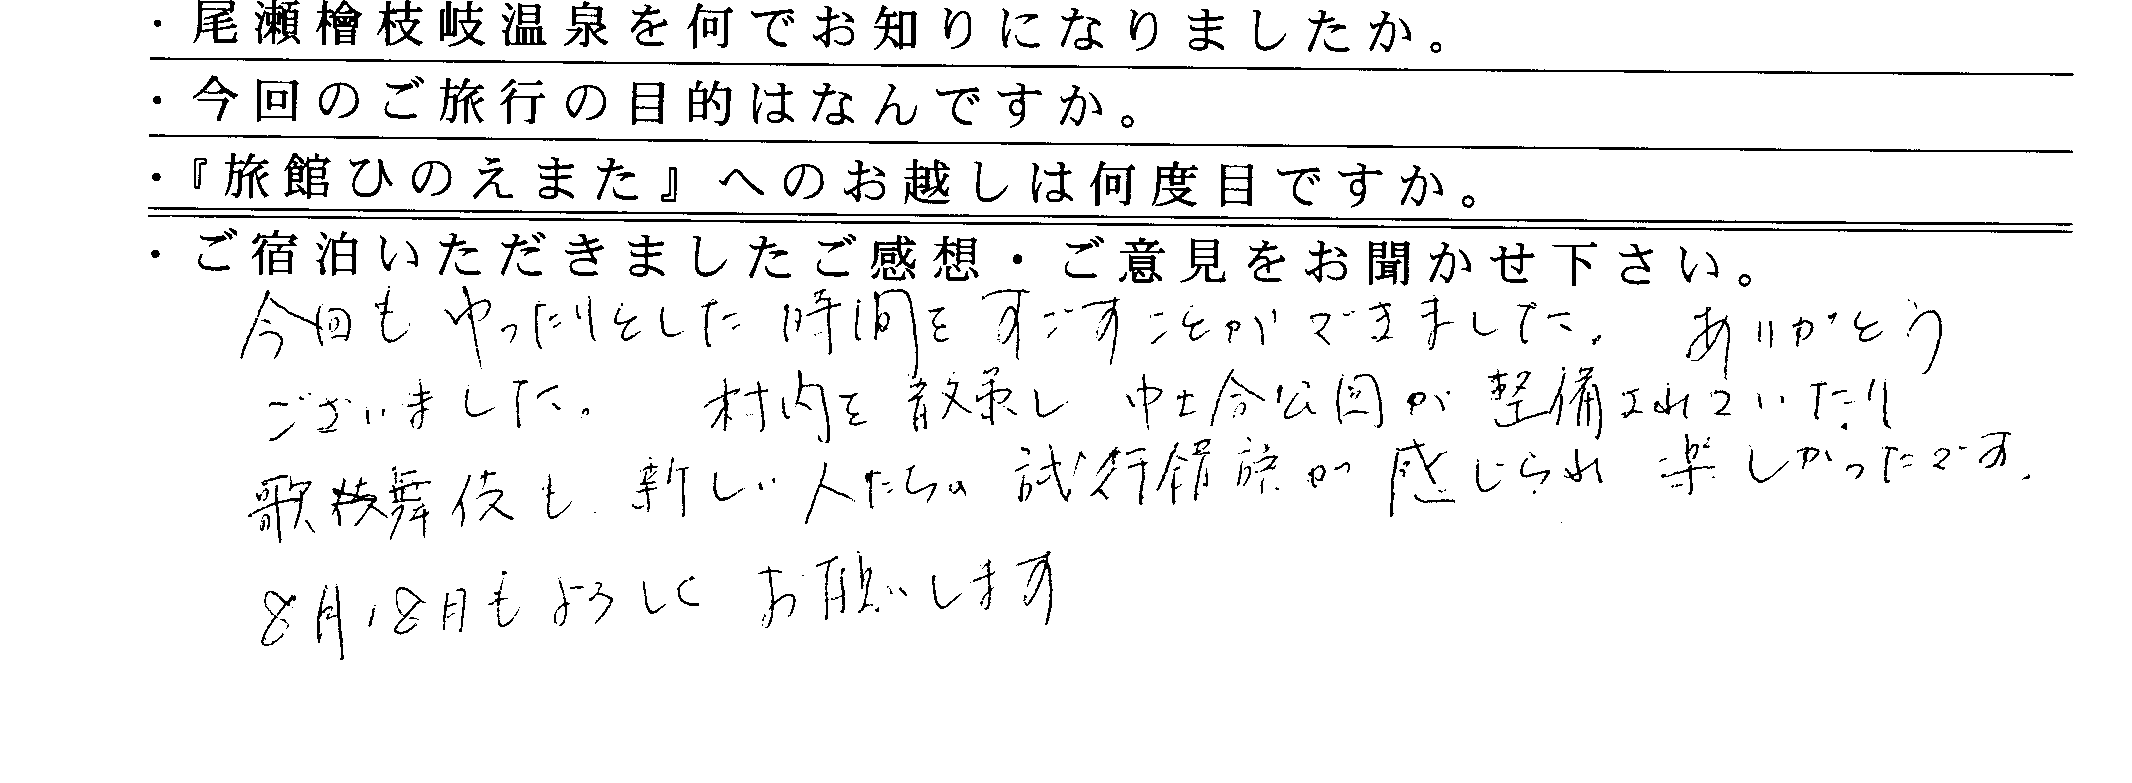 ・尾瀬檜枝岐温泉を何でお知りになりましたか。
・今回のご旅行の目的はなんですか。
・『旅館ひのえまた』へのお越しは何度目ですか。
・ご宿泊いただきましたご感想・ご意見をお聞かせ下さい。
今回も ゆったりとした 時間を すごすことができました。 ありがとう
ございました。 村内を 散策し 中土合公園が 整備されていたり
歌舞伎も 新しい人たちの 試行錯誤が 感じられ 楽しかったです。
8月18日もよろしく お願いします